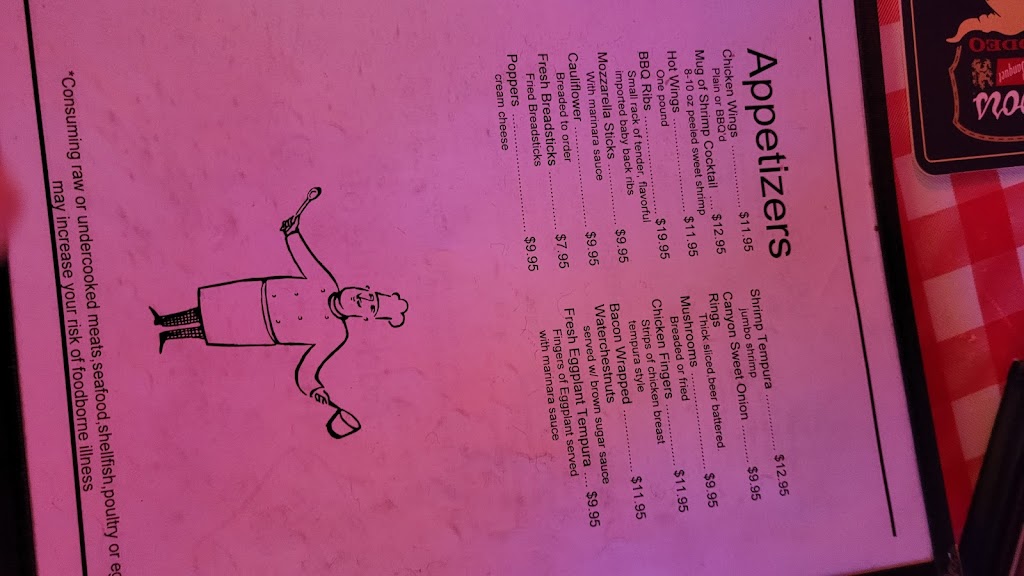 Appetizers
Chicken Wings ............. $11.95
Plain or BBQ'd
Mug of Shrimp Cocktail .... $12.95
8-10 oz peeled sweet shrimp
Hot Wings ................. $11.95
One pound
BBQ Ribs .................. $19.95
Small rack of tender, flavorful
imported baby back ribs
Mozzarella Sticks ......... $9.95
With marinara sauce
Cauliflower ............... $9.95
Breaded to order
Fresh Breadsticks ......... $7.95
Fried Breadsticks
Poppers ................... $9.95
cream cheese
Shrimp Tempura ............ $12.95
jumbo shrimp
Canyon Sweet Onion ........ $9.95
Rings
Thick sliced,beer battered
Mushrooms ................. $9.95
Breaded or fried
Chicken Fingers ........... $11.95
Strips of chicken breast
tempura style
Bacon Wrapped ............. $11.95
Waterchestnuts
served w/ brown sugar sauce
Fresh Eggplant Tempura .... $9.95
Fingers of Eggplant served
with marinara sauce
*Consuming raw or undercooked meats,seafood,shellfish,poultry or
may increase your risk of foodborne illness